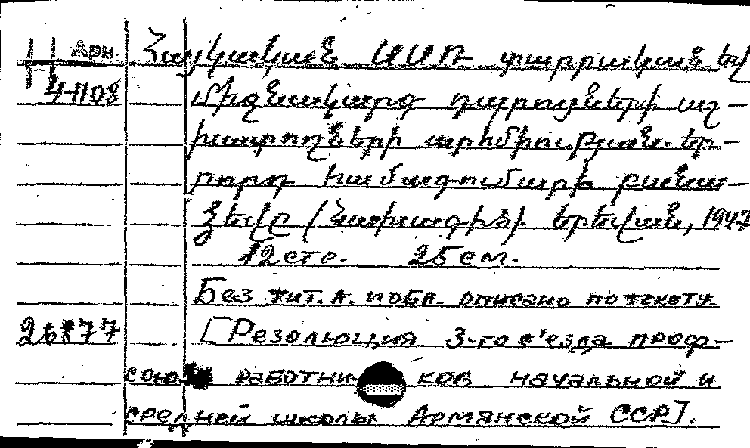 Арм. Հայկական ՍՍՌ տարրական եվ
4-1108 միջնակարգ դպրոցների աշ-
խատողների արհմիության եր-
րորդ համագումարի բանա-
ձեվը (նախագիծ). Երեվան, 1947
12 стр. 25 см.
Без тит. л. и обл. описано по тексту
26877 [Резолюция 3-го с'езда проф-
союза работников начальной и
средней школы Армянской ССР].